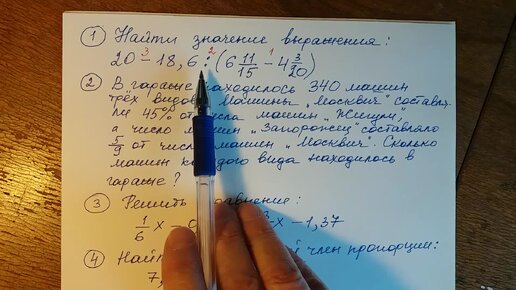 ① Найти значение выражения:
3 2 1
20 - 18,6 : (6 11/15 - 4 3/20)
② В гараже находилось 340 машин
трёх видов. Машины „Москвич" составля-
ли 45% от числа машин „Жигули",
а число машин „Запорожец" составляло
5/9 от числа машин „Москвич". Сколько
машин каждого вида находилось в
гараже?
③ Решить уравнение:
1/6 x - x - 1,37
④ член пропорции:
7,